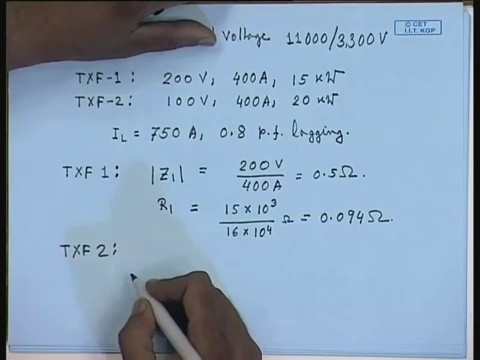 Voltage 11000/3,300V
© CET
I.I.T. KGP
TXF-1: 200 V, 400A, 15 kW
TXF-2: 100 V, 400A, 20 kW
I_L = 750 A, 0.8 p.f. lagging.
TXF 1: |Z₁| = 200 V / 400 A = 0.5Ω.
R₁ = 15 × 10³ / 16 × 10⁴ Ω = 0.094Ω.
TXF 2: